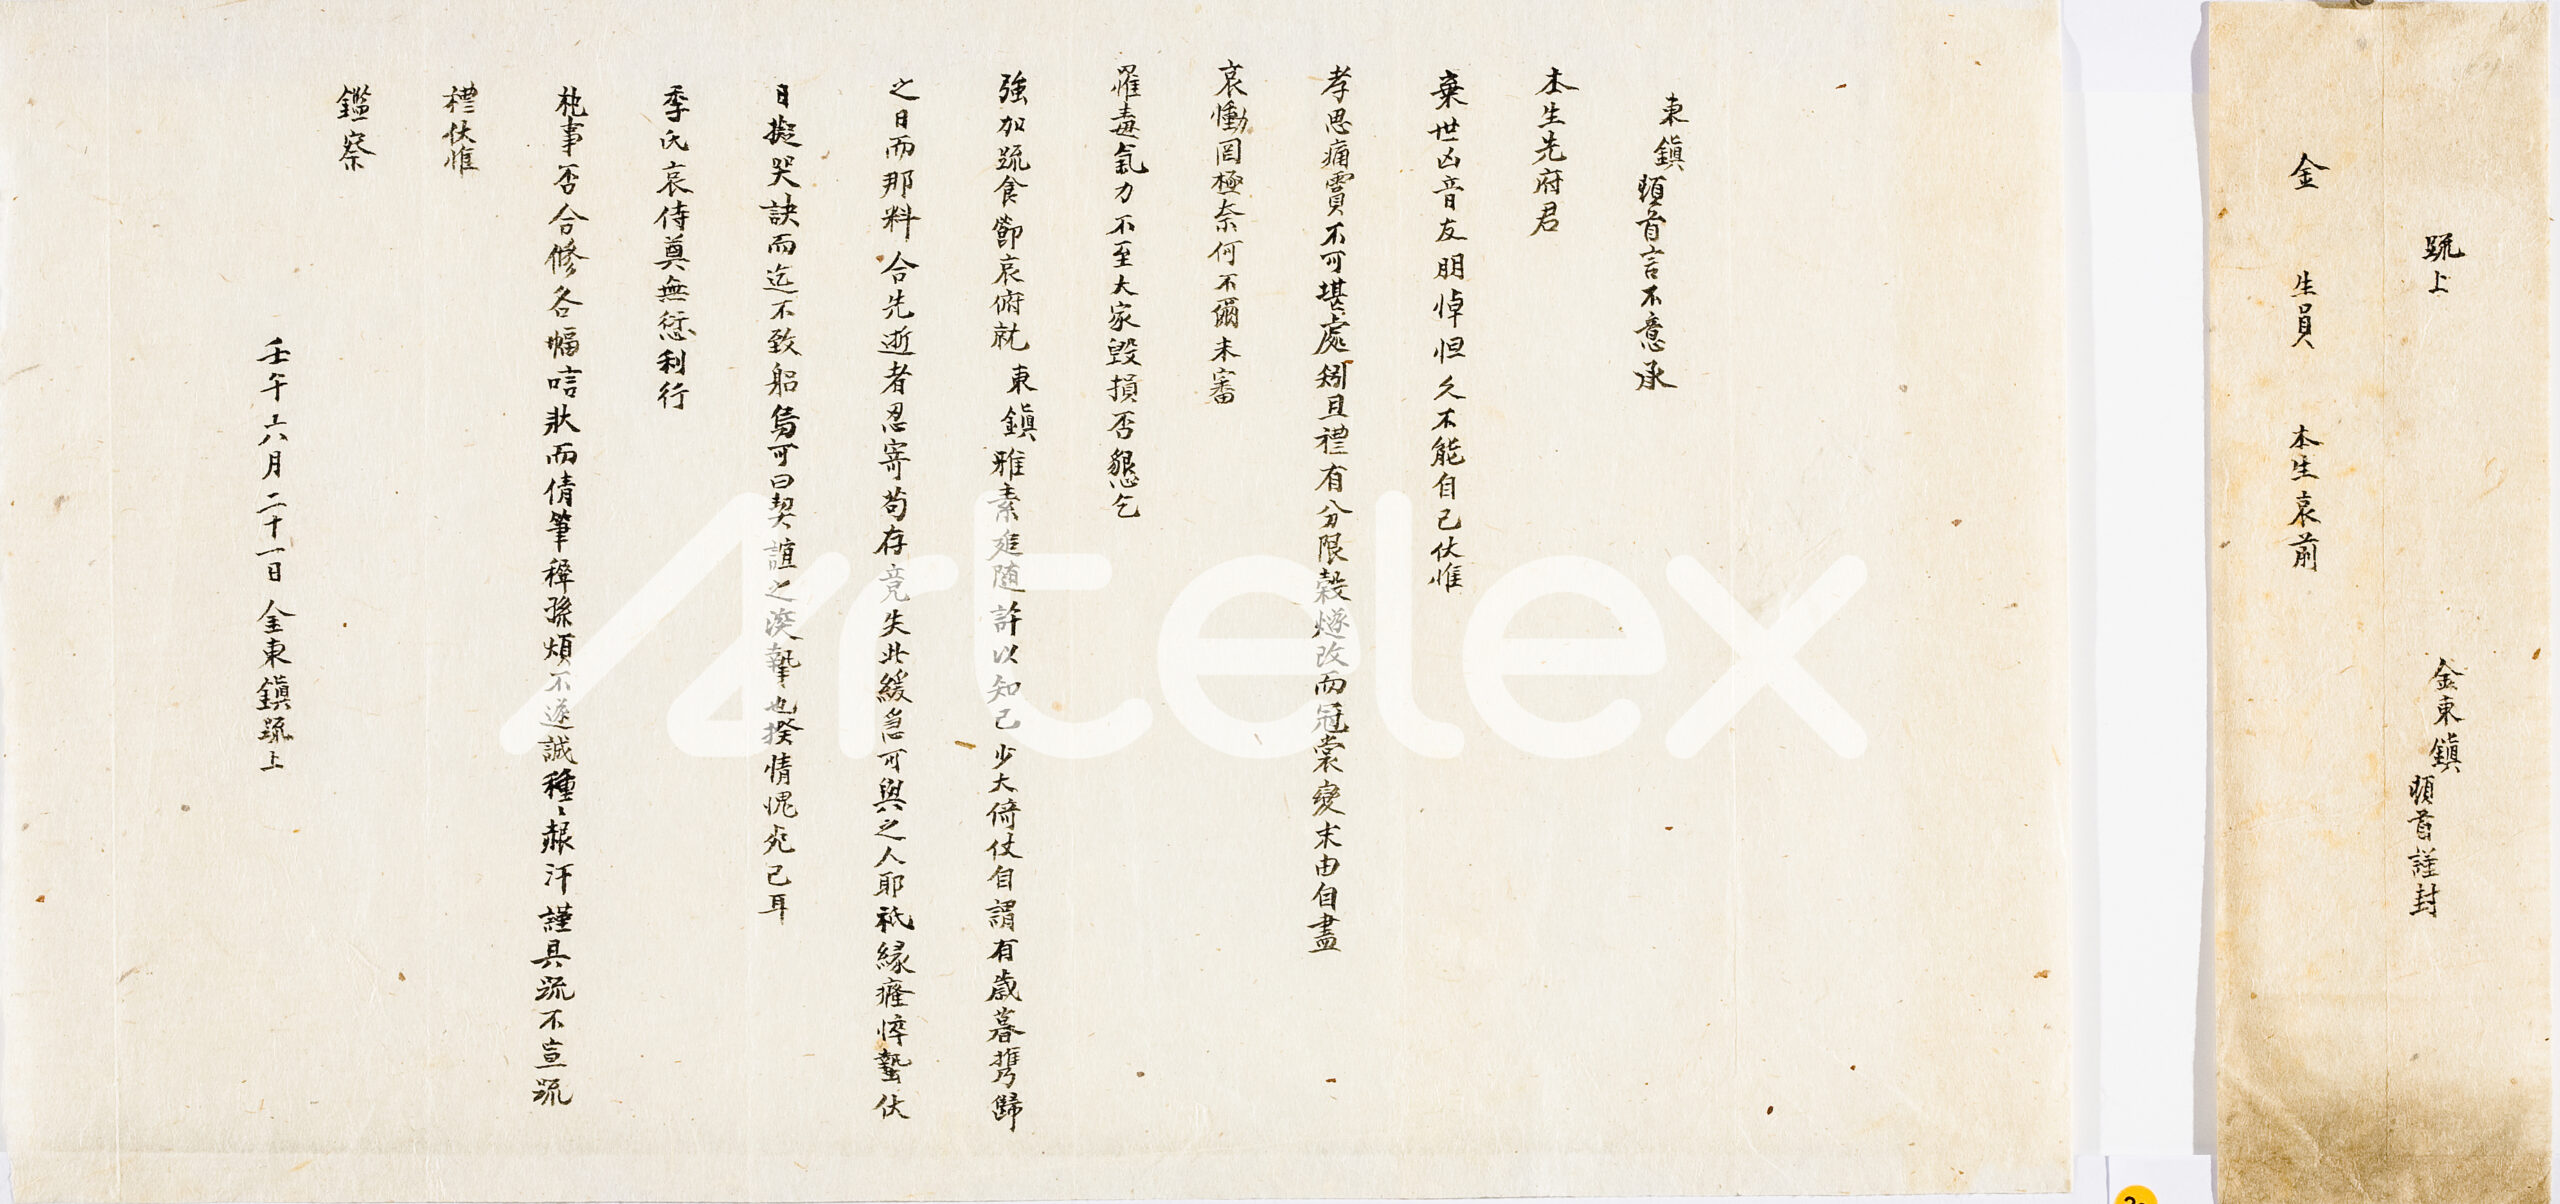 疏上
金東鎭 頓首謹封
金 生員 本生哀前
東鎭頓首言不意承
本生先府君
棄世凶音友朋悼怛久不能自已伏惟
孝思痛賈不可堪處矧且禮有分限穀燧改而冠裳變末由自盡
哀慟罔極奈何不爾未審
罹毒氣力不至大家毀損否懇乞
強加疏食節哀俯就 東鎭雅素追隨許以知己少大倚仗自謂有歲暮携歸
之日而那料合先逝者忍寄苟存竟失此緩急可與之人耶祗緣癃悴蟄伏
日擬哭訣而迄不致躬烏可曰契誼之深摯也揆情愧死已耳
季氏哀侍奠無愆利行
札事否合修各幅唁狀而倩筆稺孫煩不遂誠種〻赧汗謹具疏不宣疏
禮伏惟
鑑察
壬午六月二十一日 金東鎭疏上
Artelex